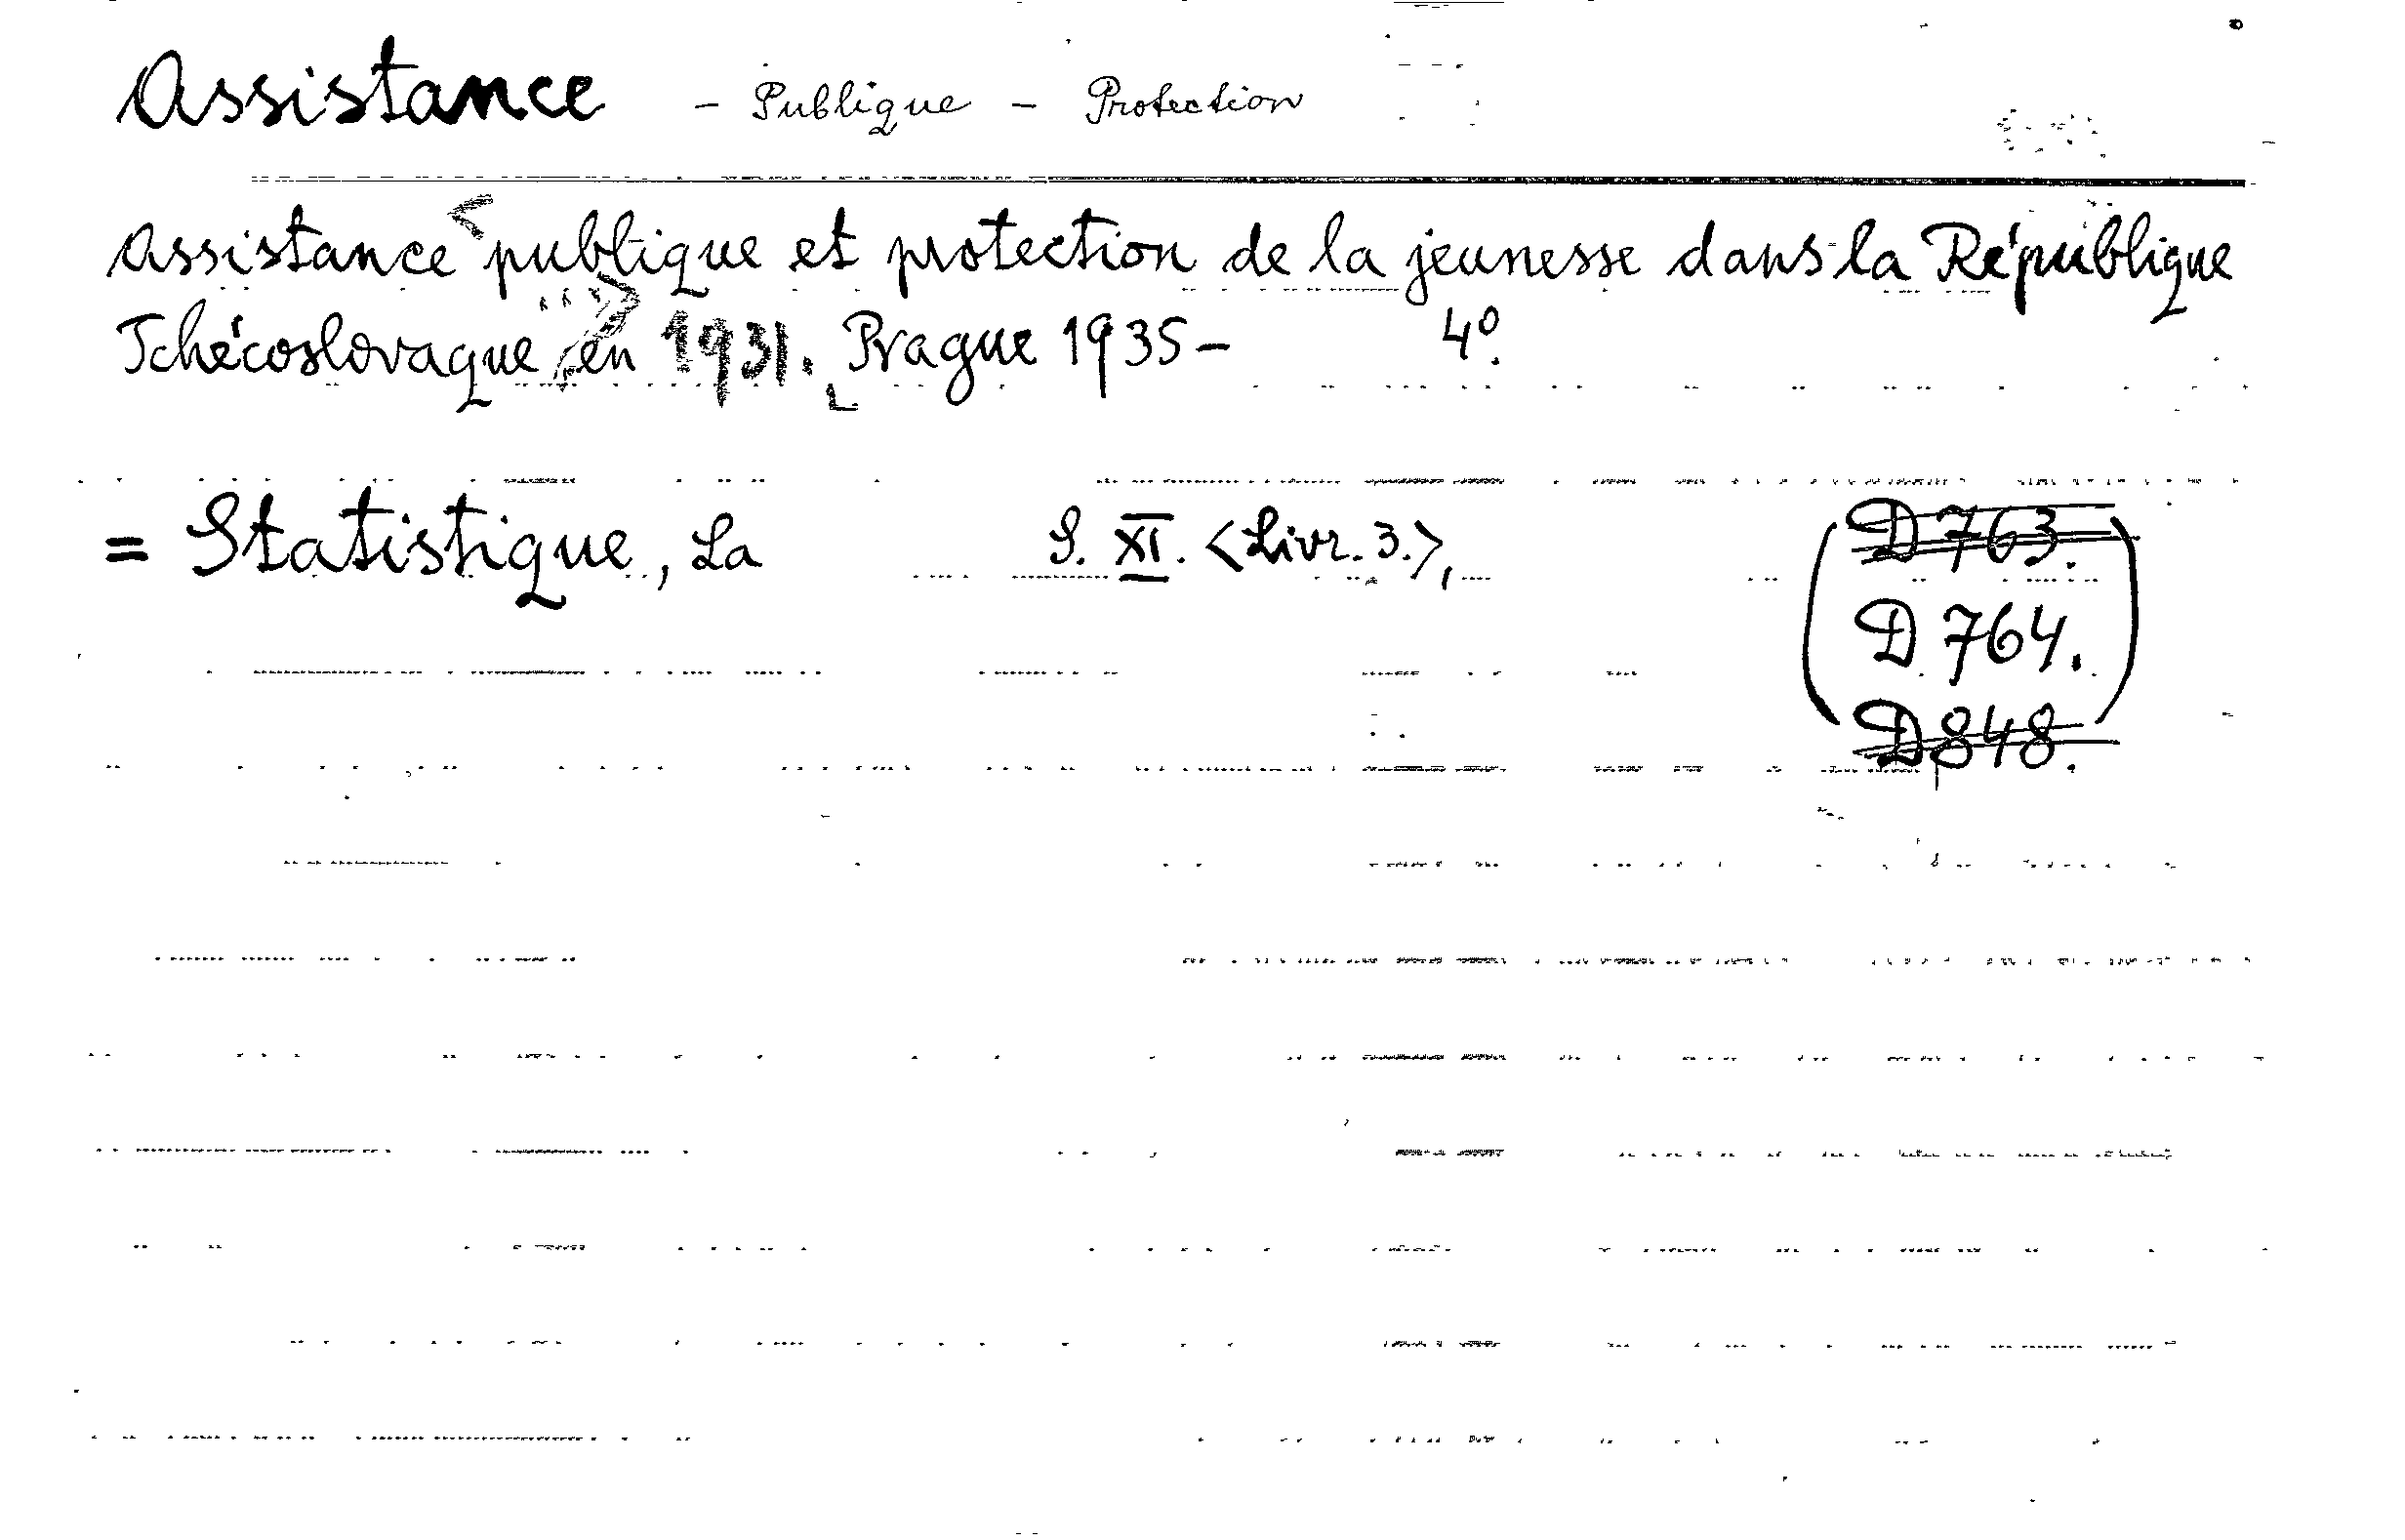 Assistance - Publique - Protection
Assistance publique et protection de la jeunesse dans la République
Tchécoslovaque en 1931. Prague 1935- 4º.
= Statistique, La S. XI. <Livr. 3.>,
D 763.
D 764.
D 848.